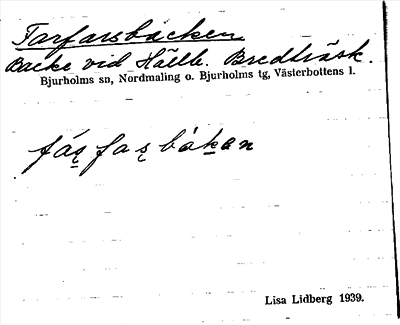 Farfarsbacken
Backe vid Hällb. Bredträsk.
Bjurholms sn, Nordmaling o. Bjurholms tg, Västerbottens l.
Lisa Lidberg 1939.